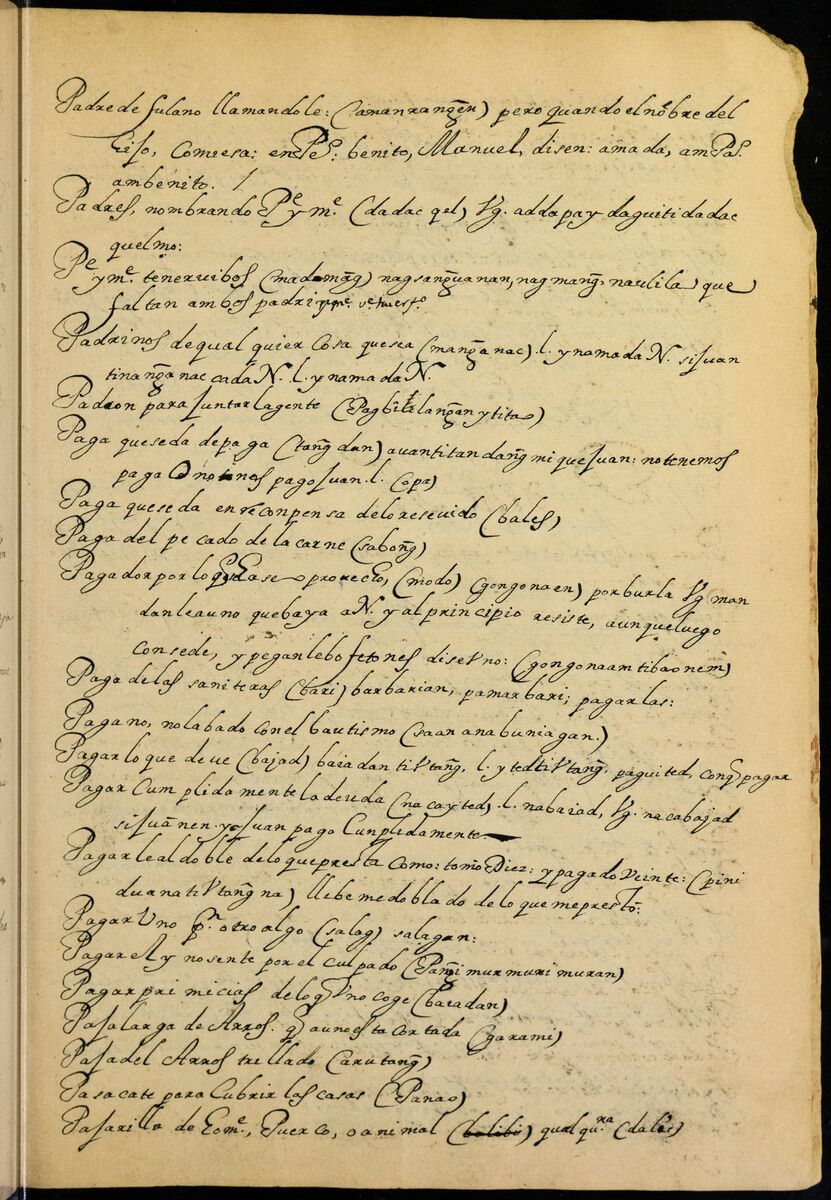 Padre de fulano llamandole: (amanrangẽn) pero quando el nõbre del
hijo, comiesa: en Pẽ: benito, Manuel, disen: amada, am Pã.
ambenito. /
Padres, nombrando Pe y me. (dadac qel) Vg. adda pay daguiti dadac
quelmo:
Pe y me. tener vibos (madamãg) nagsanguanan, nag mang̃, naulila que
faltan ambos padri
Padrinos de qual quier cosa que sea (mang̃anac) .l. ynamada N. si Juan
tinang̃anac cada N. l. ynamada N.
Padron para Juntar la gente (Pag lang̃an y titao)
Paga que se da de paga (tang̃dan) auan ti tandang̃mi que Juan: no tenemos
paga O no nos pago Juan. l. (opa)
Paga que se da en reconpensa de lo resevido (bales)
Paga del pecado de la carne (sabong̃)
Pagador por lo proyecto, (modo) (gongonaen) por burla Vg man
danle a uno que baya a N. y al principio resiste, aunque luego
consede, y peganle bofetones dise Vno: (gongonaam tibaonem)
Paga de las saniteras (bari) barbarian, pamarbari; pagarlas:
Pagano, no labado con el bautismo (saan a nabuniagan.)
Pagar lo que deve (bajad) baiadan ti Vtang̃, l. y ted ti Vtang̃, paguited, conq̃ pagar
Pagar Cumplidamente la deuda (nacayted) .l. nabaiad, Vg. nacabajad
si Juã nen. ya Juan pago Cunplidamente
Pagarle al doble de lo que presta como: tomo Diez: y pagado Veinte: (pini
durna ti Vtang̃ na) llebeme doblado de lo que me prestò:
Pagar Vno pr. otro algo (salag) salagan:
Pagar el ynosente por el culpado (Pang̃imurmurimuran)
Pagar primicias de lo q̃ Vno coge (baiadan)
Paja larga de Arros. q̃ aun esta cortada (garami)
Paja del Arros trillado (arutang̃)
Pasacate para Cubrir las casas (Panao)
Pajarilla de home., Puerco, o animal (balibi) qualqu.ra